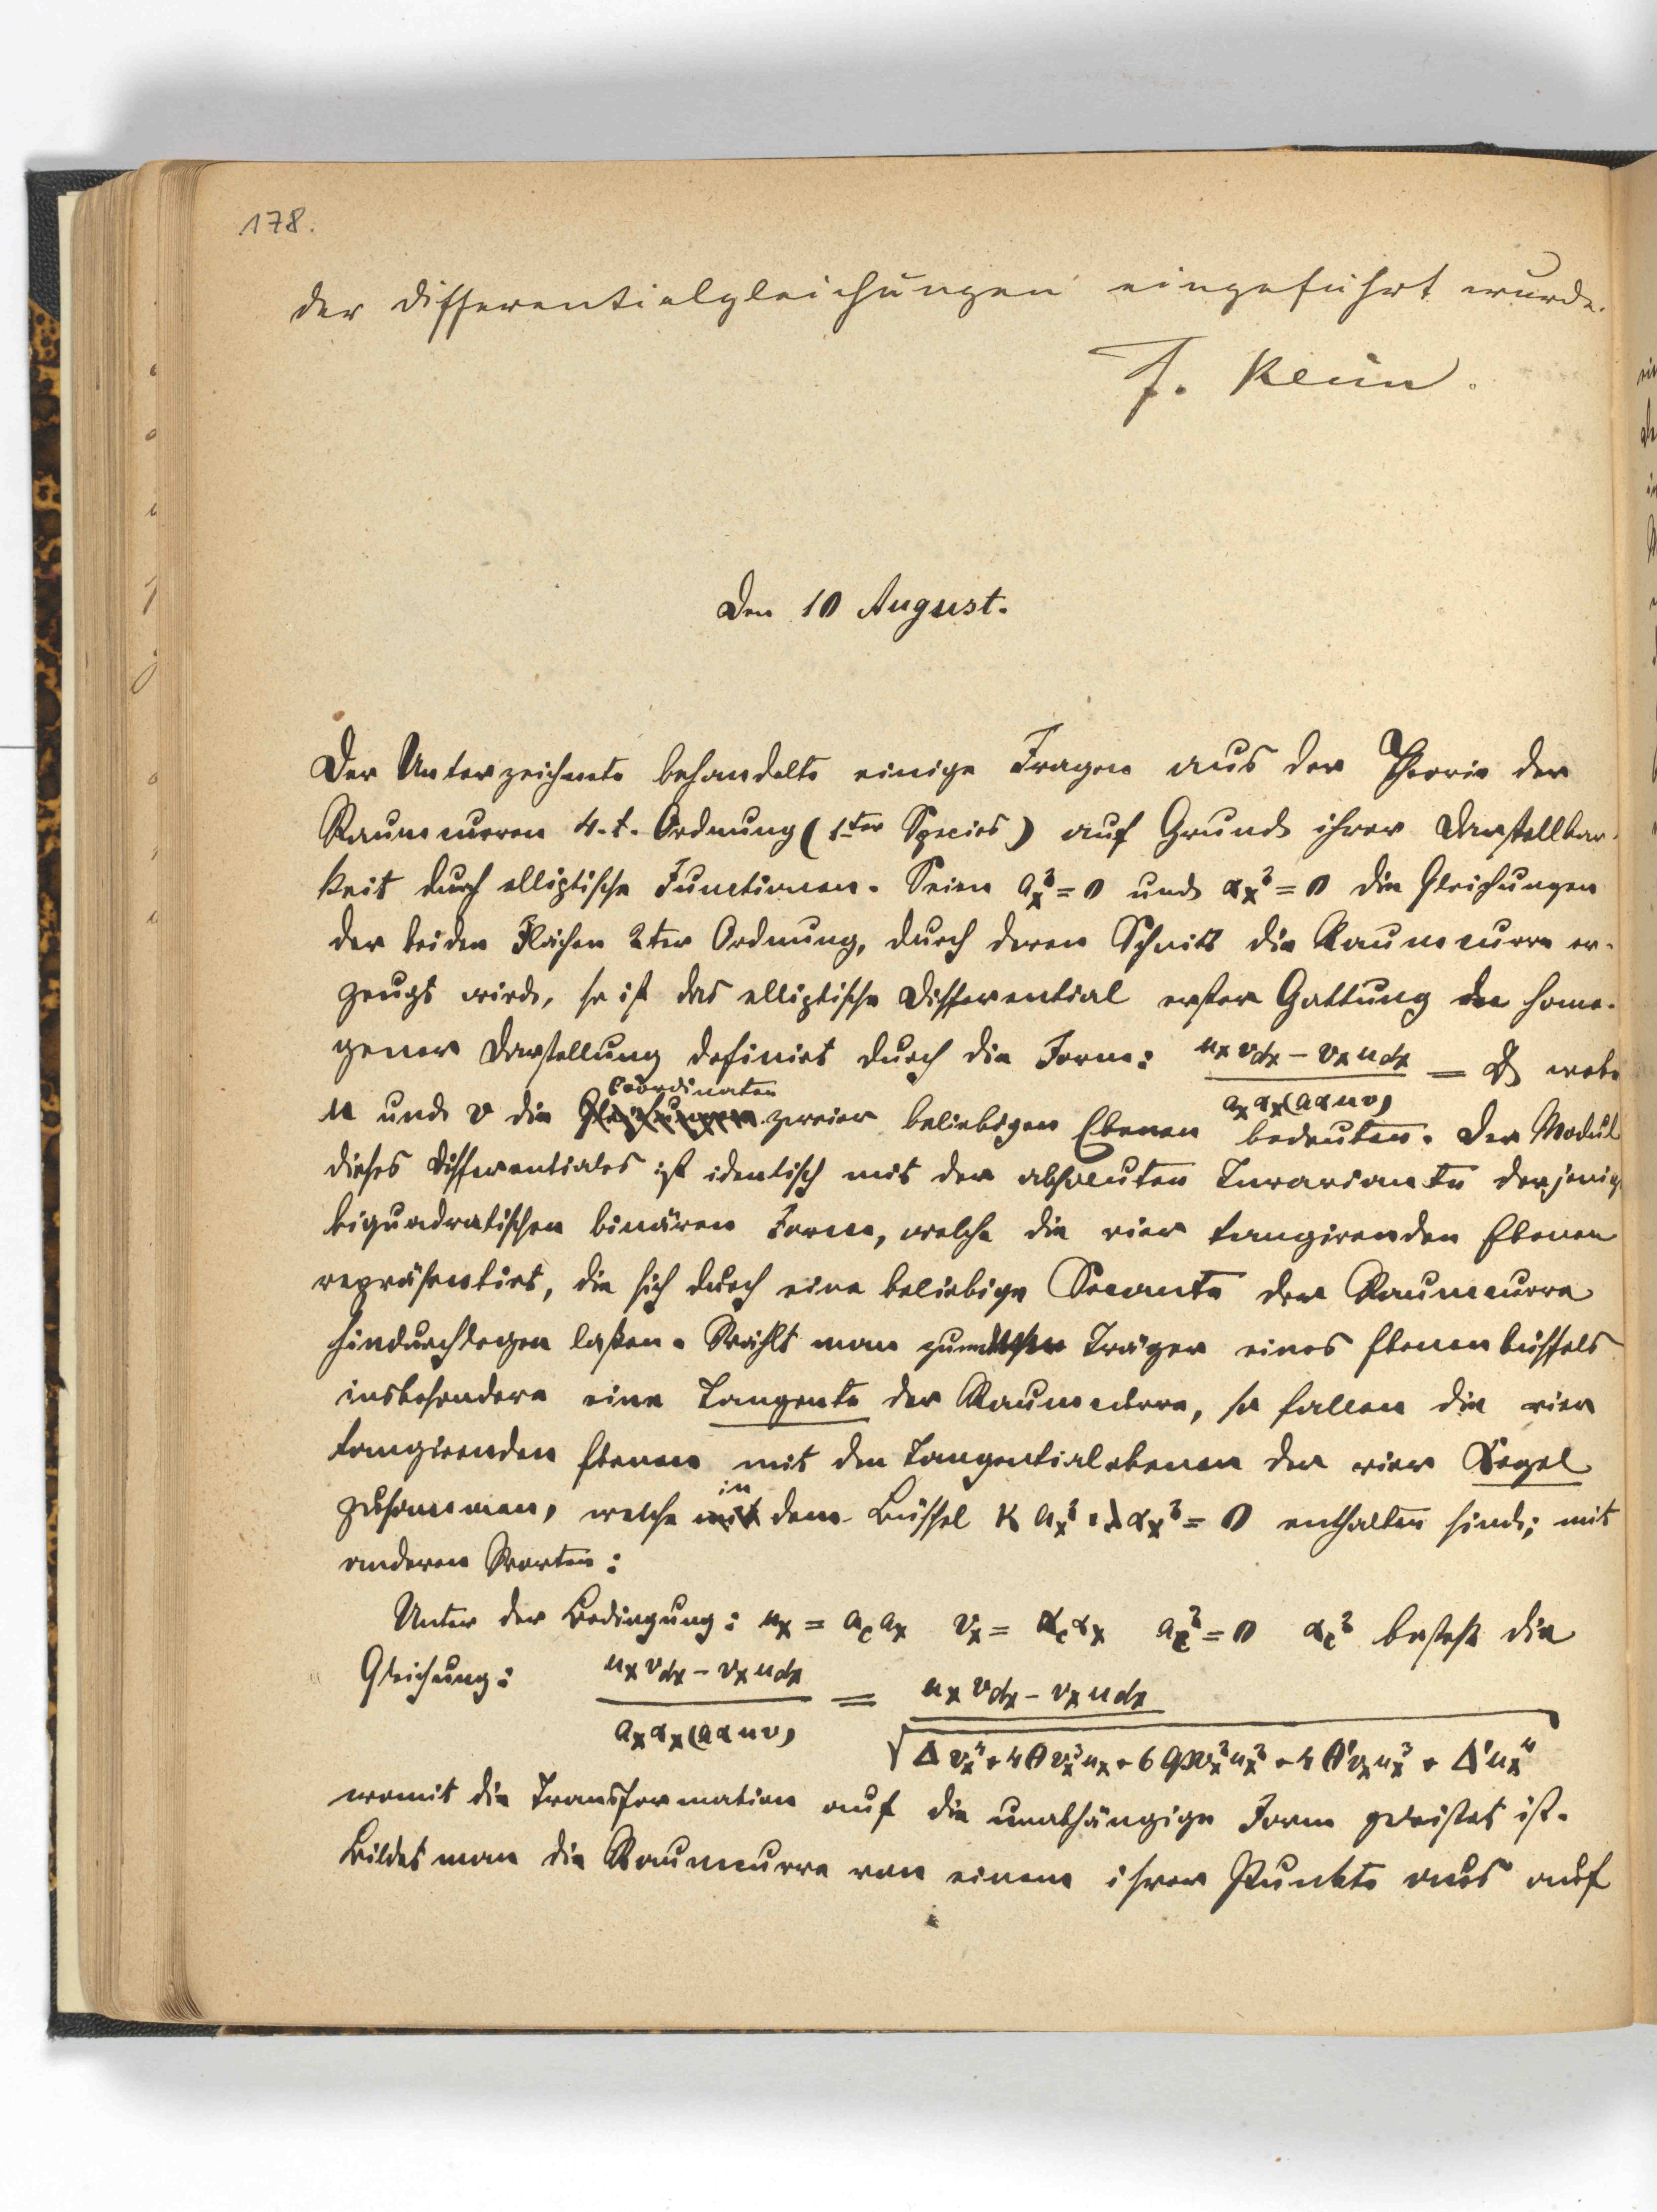 178.
der Differentialgleichungen eingeführt wurde.
F. Klein.
Den 10 August.
Der Unterzeichnete behandelte einige Fragen aus der Theorie der
Raumcurven 4.t. Ordnung (1ter Species) auf Grund ihrer Darstellbar-
keit durch elliptische Functionen. Seien a_x^2 = 0 und α_x^2 = 0 die Gleichungen
der beiden Flächen 2ter Ordnung, durch deren Schnitt die Raumcurve er-
zeugt wird, so ist das elliptische Differential erster Gattung in homo-
gener Darstellung definirt durch die Form: (u_x v_dx − v_x u_dx) / (a_x α_x (a α u v)) = wobei
u und v die Coordinaten zweier beliebigen Ebenen bedeuten. Der Modul
dieses Differentiales ist identisch mit der absoluten Invariante derjenig
biquadratischen binären Form, welche die vier tangirenden Ebenen
repräsentirt, die sich durch eine beliebige Secante der Raumcurve
hindurchlegen lassen. Wählt man zum Träger eines Ebenenbüschels
insbesondere eine Tangente der Raumcurve, so fallen die vier
tangirenden Ebenen mit den Tangentialebenen der vier Kegel
zusammen, welche in dem Büschel κ a_x^2 + λ α_x^2 = 0 enthalten sind; mit
anderen Worten:
Unter der Bedingung: u_x = a_c a_x v_x = α_c α_x a_c^2 = 0 α_c^2 besteht die
Gleichung: (u_x v_dx − v_x u_dx) / (a_x α_x (a α u v)) = (u_x v_dx − v_x u_dx) / √(Δ v_x^4 + 4 θ v_x^3 u_x + 6 φ v_x^2 u_x^2 + 4 θ' v_x u_x^3 + Δ' u_x^4)
womit die Transformation auf die unabhängige Form geleistet ist.
Bildet man die Raumcurve von einem ihrer Punkte aus auf